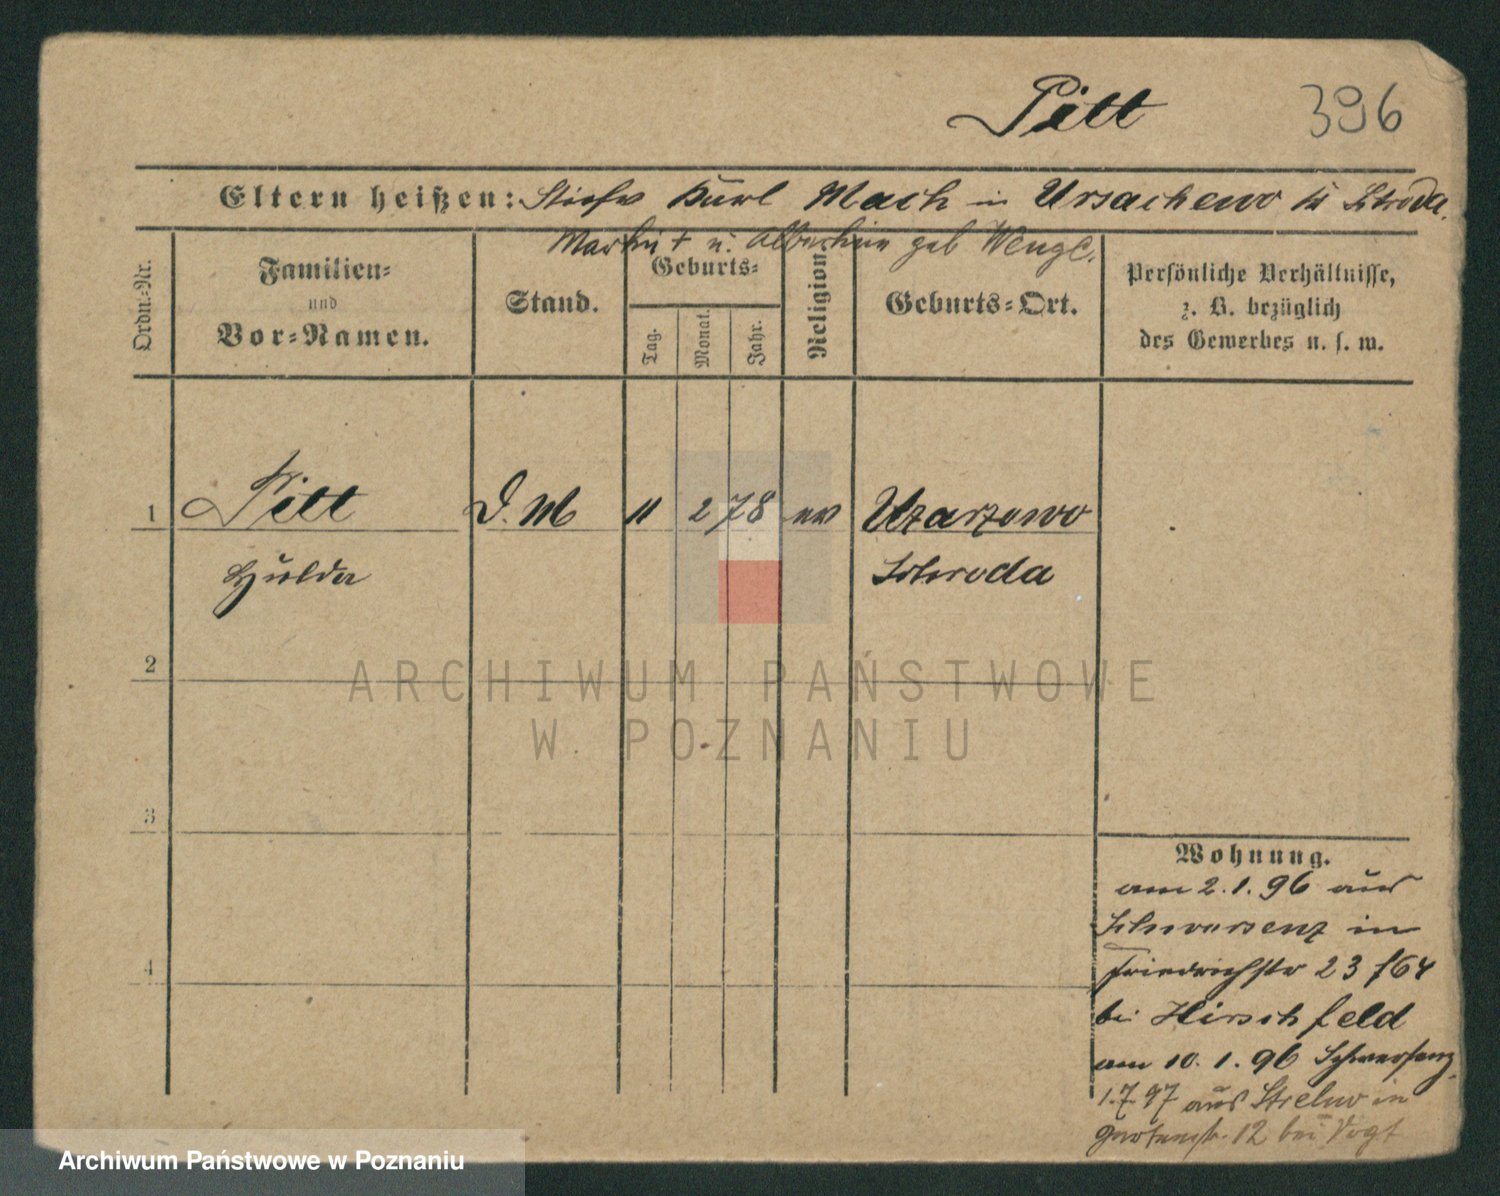 Pitt 396
Eltern heißen: Stiefv Karl Mach in Ursachewo Kr Schroda.
Martin † u. Albertine geb Wenge.
Ordn.-Nr.
Familien-
und
Vor-Namen.
Stand.
Geburts-
Tag.
Monat.
Jahr.
Religion.
Geburts-Ort.
Persönliche Verhältnisse,
z. B. bezüglich
des Gewerbes u. s. w.
1 Pitt D. M 11 2 78 ev Uzarzewo
Hulda Schroda
2
ARCHIWUM PAŃSTWOWE
W POZNANIU
3
Wohnung.
am 2.1.96 aus
Schwersenz in
4
Friedrichstr 23 f64
bei Hirschfeld
am 10.1.96 Schwersenz
1.7.97 aus Strelno in
Gartenstr. 12 bei Vogt
Archiwum Państwowe w Poznaniu